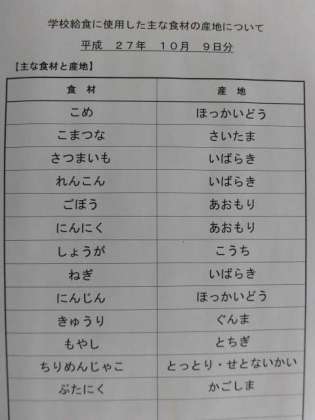 学校給食に使用した主な食材の産地について
平成 27年 10月 9日分
【主な食材と産地】
食 材 産 地
こめ ほっかいどう
こまつな さいたま
さつまいも いばらき
れんこん いばらき
ごぼう あおもり
にんにく あおもり
しょうが こうち
ねぎ いばらき
にんじん ほっかいどう
きゅうり ぐんま
もやし とちぎ
ちりめんじゃこ とっとり・せとないかい
ぶたにく かごしま